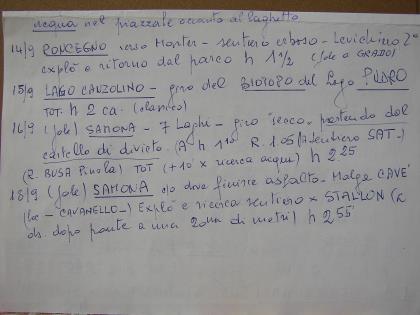 acqua nel piazzale accanto al laghetto
14/9 RONCEGNO verso Monter - sentiero erboso - Levichino 2°
explò e ritorno dal parco h 1½ (sole a GRADO)
15/9 LAGO CANZOLINO - giro del BIOTOPO del lago PUDRO
TOT. h 2 ca. (classico)
16/9 (sole) SAMONA - 7 Laghi - giro "secco" partendo dal
cartello di divieto. (A h 1¹⁰ R. 1.05 / sentiero SAT-)
(R. BUSA Pinola) TOT (+10' x ricerca acqui) h 2 25
18/9 (sole) SAMONA c/o dove finisce asfalto - Malga CAVÉ
(loc - CAVANELLO -) Explò e ricerca sentiero x STALLON (a
ds. dopo ponte a una 20na di metri) h 2 55'